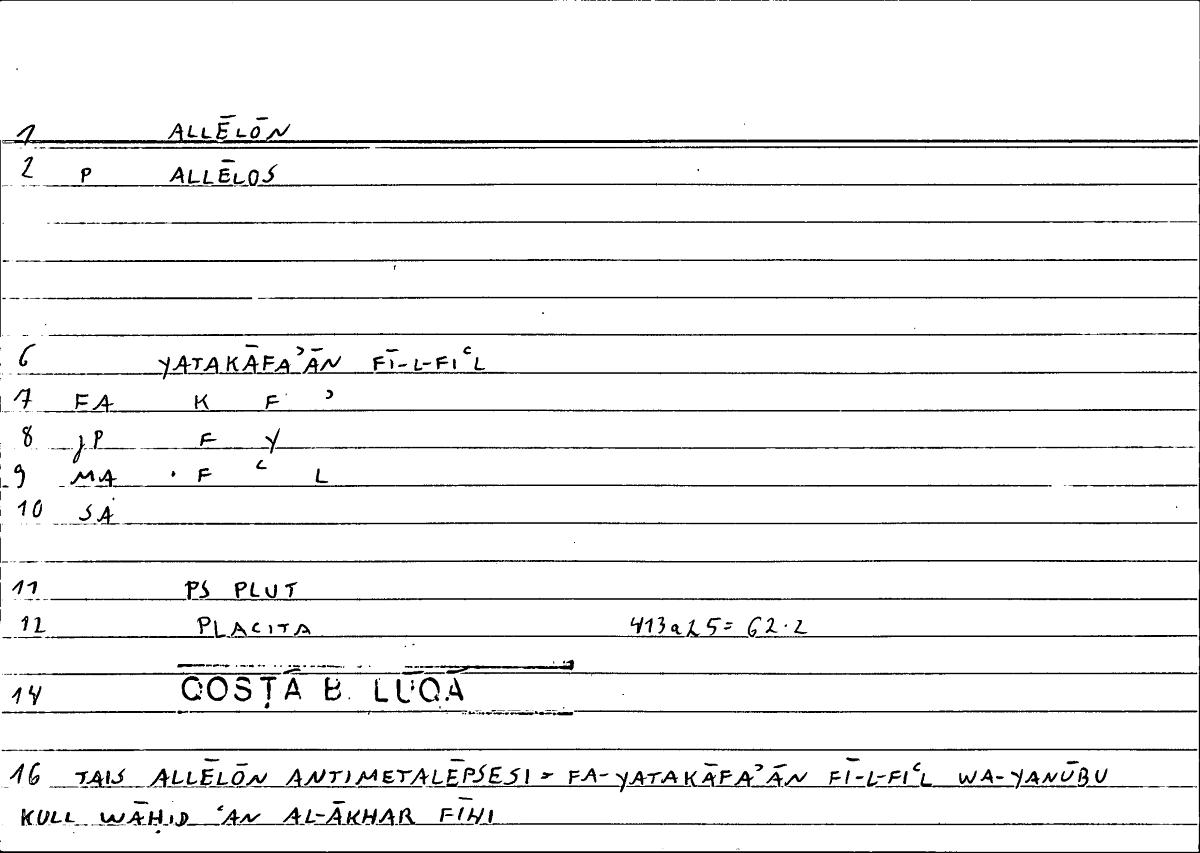 1 ALLĒLŌN
2 P ALLĒLOS
6 YATAKĀFAʾĀN FĪ-L-FIʿL
7 FA K F ʾ
8 JP F Y
9 MA . F ʿ L
10 SA
11 PS PLUT
12 PLACITA 413a25= 62.2
14 QOSṬĀ B. LŪQĀ
16 TAIS ALLĒLŌN ANTIMETALĒPSESI = FA-YATAKĀFAʾĀN FĪ-L-FIʿL WA-YANŪBU
KULL WĀḤID ʿAN AL-ĀKHAR FĪHI